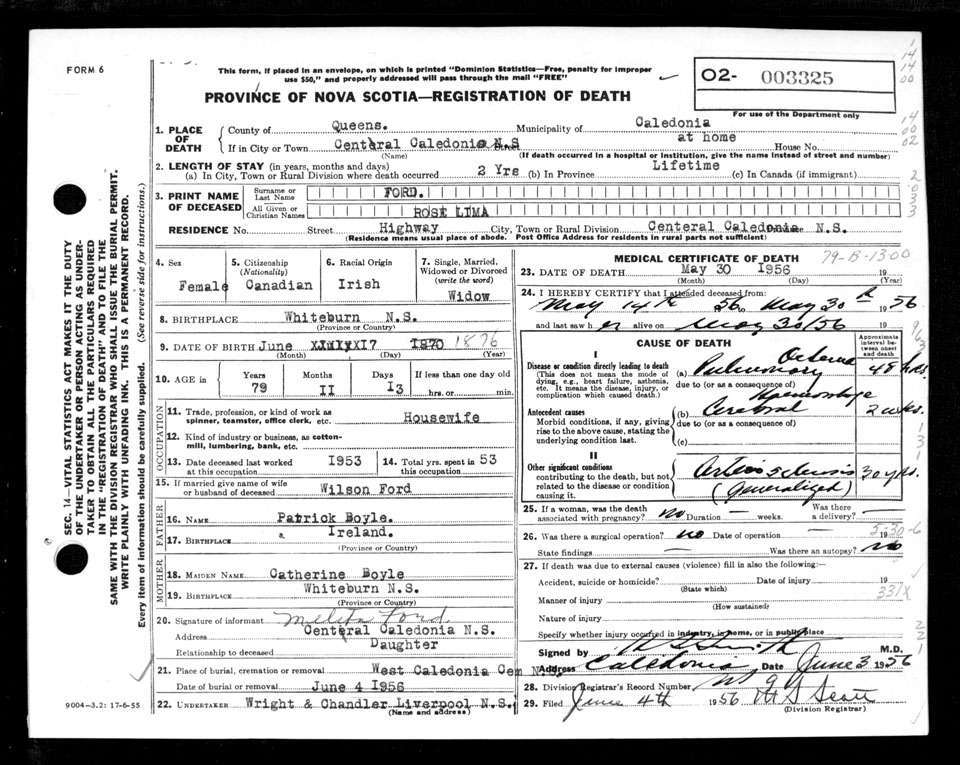 FORM 6
This form, if placed in an envelope, on which is printed "Dominion Statistics—Free, penalty for improper
use $50," and properly addressed will pass through the mail "FREE"
PROVINCE OF NOVA SCOTIA—REGISTRATION OF DEATH
O2- 003325
For use of the Department only
1. PLACE OF DEATH
County of Queens. Municipality of Caledonia
If in City or Town Centeral Caledonia N.S Street at home House No.
(Name) (If death occurred in a hospital or institution, give the name instead of street and number)
2. LENGTH OF STAY (in years, months and days)
(a) In City, Town or Rural Division where death occurred 2 Yrs (b) In Province Lifetime (c) In Canada (if immigrant)
3. PRINT NAME OF DECEASED
Surname or Last Name FORD.
All Given or Christian Names ROSE LIMA
RESIDENCE No. Street Highway City, Town or Rural Division Centeral Caledonia N.S.
(Residence means usual place of abode. Post Office Address for residents in rural parts not sufficient)
4. Sex Female
5. Citizenship (Nationality) Canadian
6. Racial Origin Irish
7. Single, Married, Widowed or Divorced (write the word) Widow
8. BIRTHPLACE Whiteburn N.S.
(Province or Country)
9. DATE OF BIRTH June I7 1870 1876
(Month) (Day) (Year)
10. AGE in Years 79 Months II Days I3 If less than one day old hrs. or min.
OCCUPATION
11. Trade, profession, or kind of work as spinner, teamster, office clerk, etc. Housewife
12. Kind of industry or business, as cotton-mill, lumbering, bank, etc.
13. Date deceased last worked at this occupation I953
14. Total yrs. spent in this occupation 53
15. If married give name of wife or husband of deceased Wilson Ford
FATHER
16. NAME Patrick Boyle.
17. BIRTHPLACE Ireland.
(Province or Country)
MOTHER
18. MAIDEN NAME Catherine Boyle
19. BIRTHPLACE Whiteburn N.S.
(Province or Country)
20. Signature of informant Melita Ford
Address Centeral Caledonia N.S.
Relationship to deceased Daughter
21. Place of burial, cremation or removal West Caledonia Cem N.S.
Date of burial or removal June 4 I956
22. UNDERTAKER Wright & Chandler Liverpool N.S.
(Name and address)
9004-3.2: 17-6-55
SEC. 14—VITAL STATISTICS ACT MAKES IT THE DUTY
OF THE UNDERTAKER OR PERSON ACTING AS UNDER-
TAKER TO OBTAIN ALL THE PARTICULARS REQUIRED
IN THE "REGISTRATION OF DEATH" AND TO FILE THE
SAME WITH THE DIVISION REGISTRAR WHO SHALL ISSUE THE BURIAL PERMIT.
WRITE PLAINLY WITH UNFADING INK. THIS IS A PERMANENT RECORD.
Every item of information should be carefully supplied. (See reverse side for instructions.)
79-B-13-00
MEDICAL CERTIFICATE OF DEATH
23. DATE OF DEATH May 30 I956 19
(Month) (Day) (Year)
24. I HEREBY CERTIFY that I attended deceased from
May 14th 56 to May 30th 1956
and last saw her alive on May 30/56 19
CAUSE OF DEATH
Approximate interval between onset and death
I
Disease or condition directly leading to death
(This does not mean the mode of dying, e.g., heart failure, asthenia, etc. It means the disease, injury, or complication which caused death.)
(a) Pulmonary Oedema 48 hrs
due to (or as a consequence of)
Antecedent causes
Morbid conditions, if any, giving rise to the above cause, stating the underlying condition last.
(b) Cerebral Haemorrhage 2 wks.
due to (or as a consequence of)
(c)
II
Other significant conditions
contributing to the death, but not related to the disease or condition causing it.
Arterio Sclerosis (Generalized) 30 yrs.
25. If a woman, was the death associated with pregnancy? No Duration — weeks. Was there a delivery? —
26. Was there a surgical operation? No Date of operation — 19
5-30-6
State findings — Was there an autopsy? No
27. If death was due to external causes (violence) fill in also the following:—
Accident, suicide or homicide? Date of injury 19
(State which)
331X
Manner of injury
(How sustained)
Nature of injury
Specify whether injury occurred in industry, in home, or in public place
Signed by Smith M.D.
Address Caledonia, Date June 3 1956
28. Division Registrar's Record Number
29. Filed June 4th 1956
(Division Registrar)